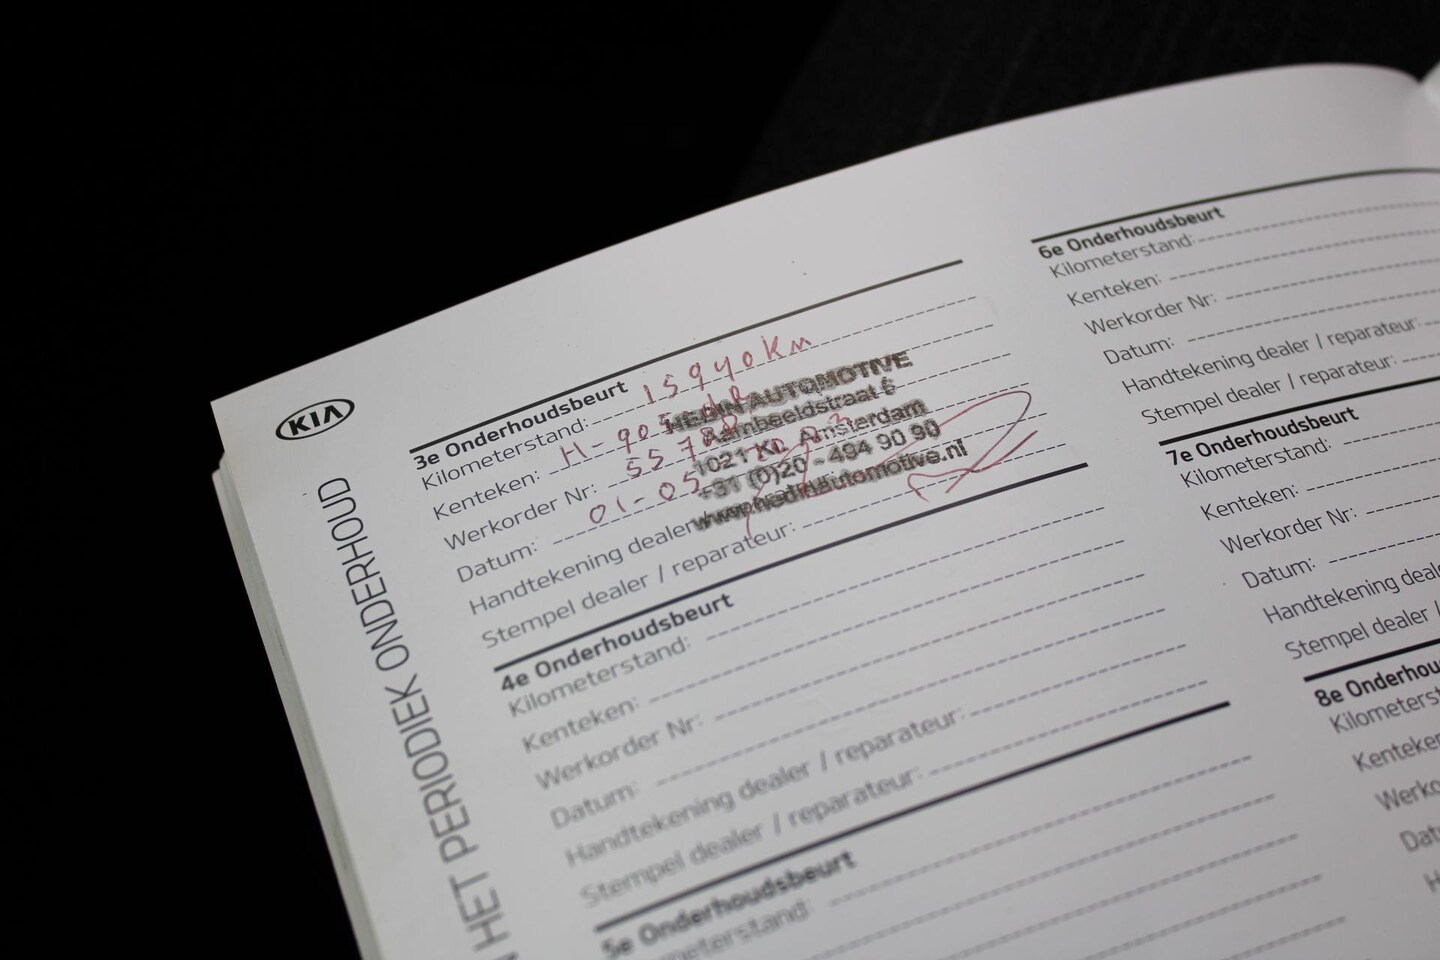 KIA
N HET PERIODIEK ONDERHOUD
3e Onderhoudsbeurt
Kilometerstand: 15940 Km
Kenteken: H-905-
Werkorder Nr: 55788
Datum: 01-05-
Handtekening dealer
Stempel dealer / reparateur:
HEDIN AUTOMOTIVE
Aambeeldstraat 6
1021 KL Amsterdam
+31 (0)20 - 494 90 90
www.hedinautomotive.nl
4e Onderhoudsbeurt
Kilometerstand:
Kenteken:
Werkorder Nr:
Datum:
Handtekening dealer / reparateur:
Stempel dealer / reparateur:
5e Onderhoudsbeurt
meterstand:
6e Onderhoudsbeurt
Kilometerstand:
Kenteken:
Werkorder Nr:
Datum:
Handtekening dealer / reparateur:
Stempel dealer / reparateur:
7e Onderhoudsbeurt
Kilometerstand:
Kenteken:
Werkorder Nr:
Datum:
Handtekening deale
Stempel dealer /
8e Onderhou
Kilometerst
Kenteken
Werko
Dat
H